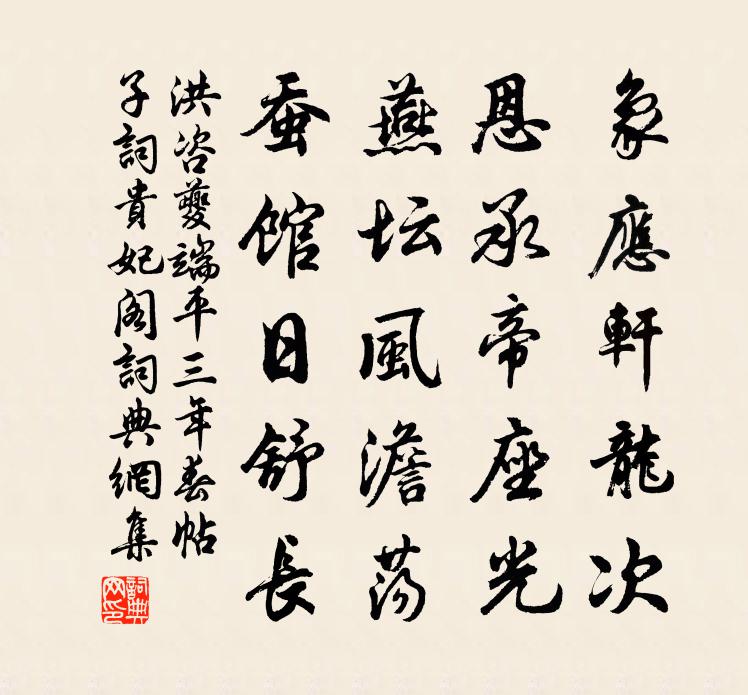 象應軒龍次
恩承帝座光
燕坛風澹荡
蚕馆日舒長
洪咨夔端平三年春帖
子詞貴妃阁詞典網集
詞典網印